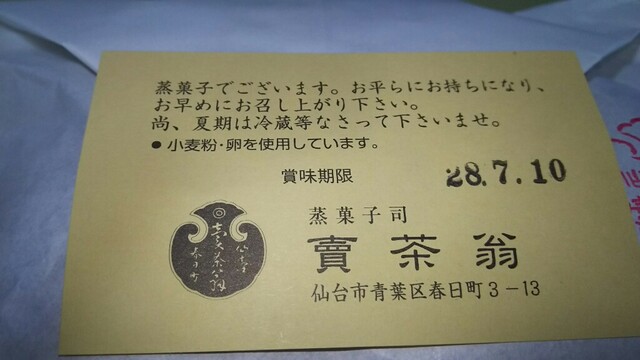 蒸菓子でございます。お平らにお持ちになり、
お早めにお召し上がり下さい。
尚、夏期は冷蔵等なさって下さいませ。
●小麦粉・卵を使用しています。
賞味期限 28.7.10
蒸菓子司
賣茶翁
仙台市青葉区春日町3-13